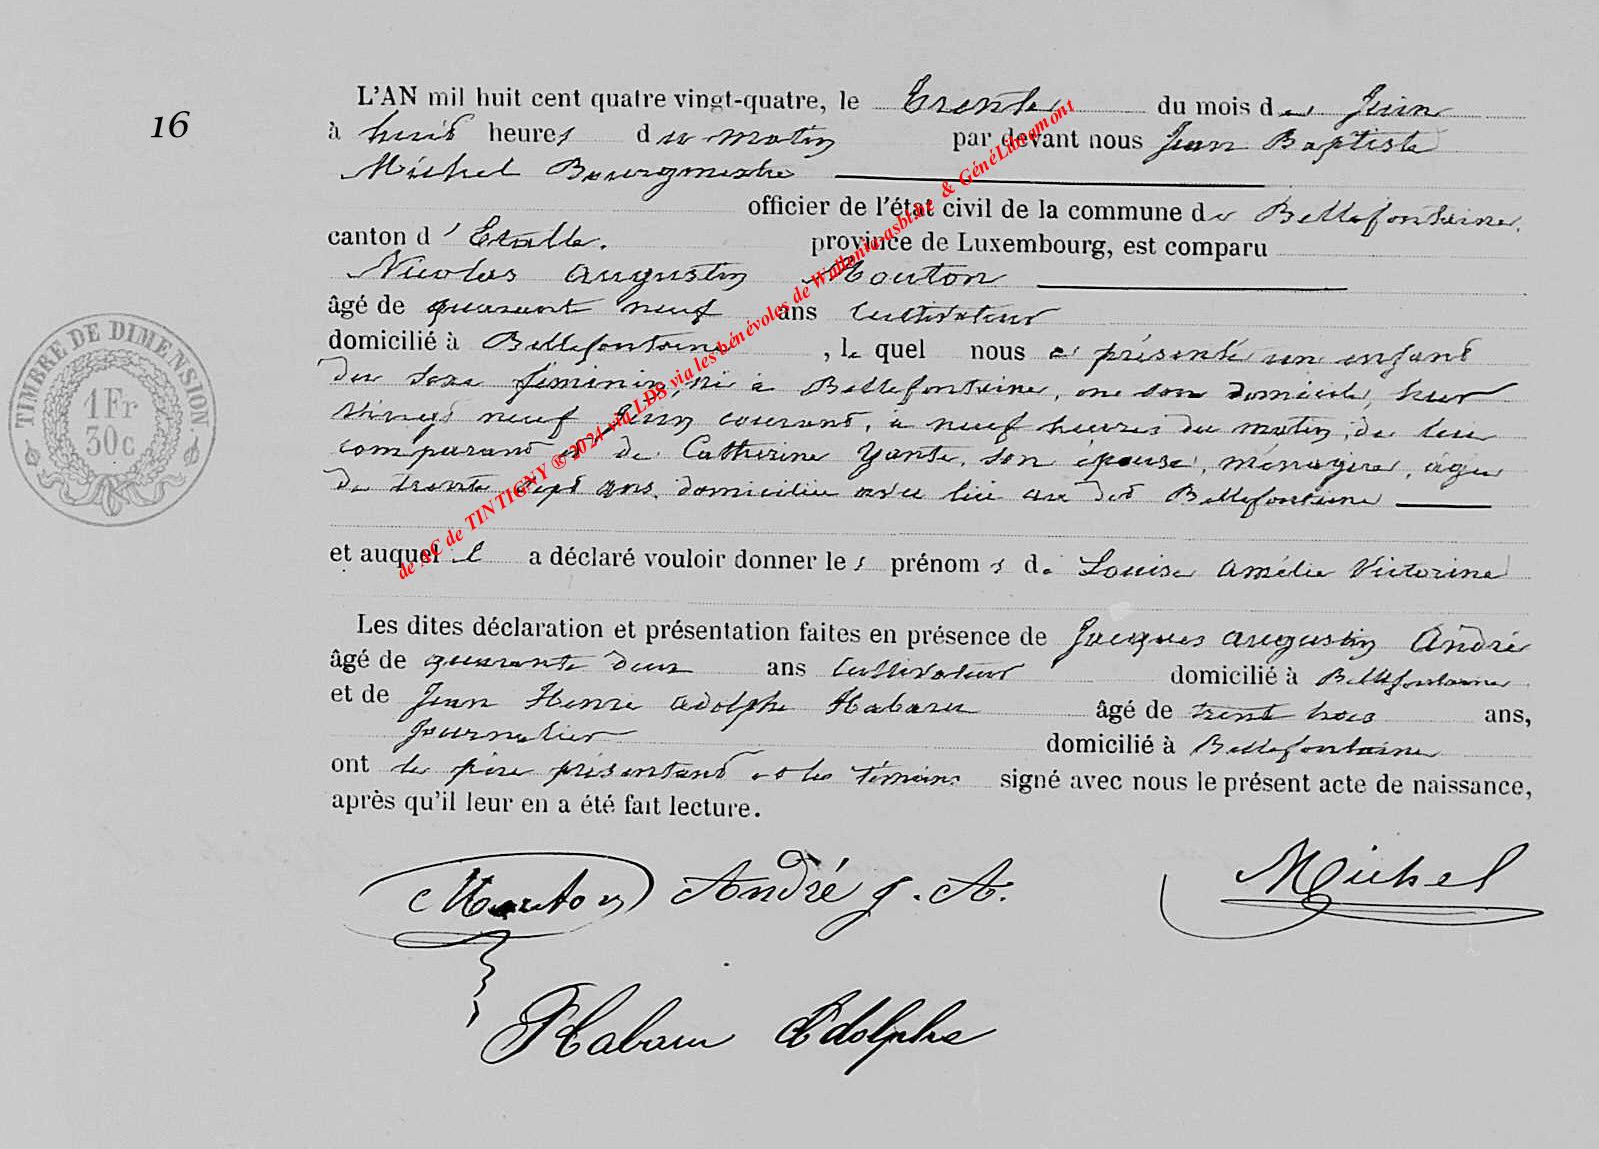 16
L'AN mil huit cent quatre vingt-quatre, le Trente du mois de Juin
à huit heures du matin par devant nous Jean Baptiste
Michel Bourgmestre
officier de l'état civil de la commune de Bellefontaine
canton d'Etalle. province de Luxembourg, est comparu
Nicolas Augustin Mouton
âgé de quarante neuf ans Cultivateur
domicilié à Bellefontaine, le quel nous a présenté un enfant
du sexe féminin, né à Bellefontaine, en son domicile, hier
vingt neuf Juin courant, à neuf heures du matin, de lui
comparant et de Catherine Yante, son épouse, ménagère, âgée
de trente sept ans, domiciliée avec lui au dit Bellefontaine
et auquel il a déclaré vouloir donner les prénoms de Louise Amélie Victorine
Les dites déclaration et présentation faites en présence de Jacques Augustin André
âgé de quarante deux ans Cultivateur domicilié à Bellefontaine
et de Jean Henri Adolphe Habaru âgé de trente trois ans,
Journalier domicilié à Bellefontaine
ont le père présentant et les témoins signé avec nous le présent acte de naissance,
après qu'il leur en a été fait lecture.
Mouton André J. A. Michel
Habaru Adolphe
TIMBRE DE DIMENSION
1 Fr
30c
de AC de TINTIGNY ® 2024 via LDS via les bénévoles de Wallonia-asbl.be & GénéLibramont